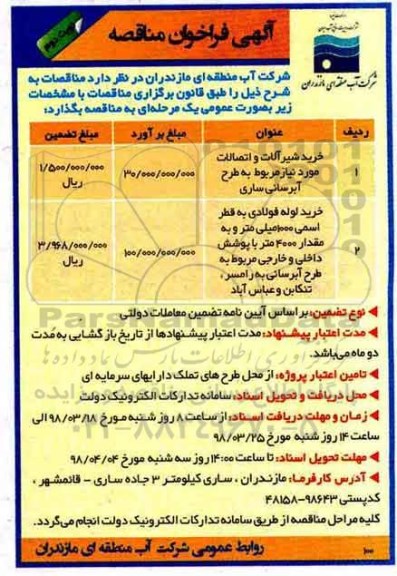 آگهی فراخوان مناقصه
نوبت دوم
شرکت آب منطقه ای مازندران
شرکت آب منطقه ای مازندران در نظر دارد مناقصات به
شرح ذیل را طبق قانون برگزاری مناقصات با مشخصات
زیر بصورت عمومی یک مرحله‌ای به مناقصه بگذارد:
ردیف عنوان مبلغ بر آورد مبلغ تضمین
۱ خرید شیرآلات و اتصالات مورد نیاز مربوط به طرح آبرسانی ساری ۳۰/۰۰۰/۰۰۰/۰۰۰ ۱/۵۰۰/۰۰۰/۰۰۰ ریال
۲ خرید لوله فولادی به قطر اسمی ۱۰۰۰میلی متر و به مقدار ۴۰۰۰ متر با پوشش داخلی و خارجی مربوط به طرح آبرسانی به رامسر ، تنکابن و عباس آباد ۱۰۰/۰۰۰/۰۰۰/۰۰۰ ۳/۹۶۸/۰۰۰/۰۰۰ ریال
نوع تضمین: بر اساس آیین نامه تضمین معاملات دولتی
مدت اعتبار پیشنهاد: مدت اعتبار پیشنهادها از تاریخ باز گشایی به مُدت
دو ماه می‌باشد.
تامین اعتبار پروژه: از محل طرح های تملک دارایهای سرمایه ای
محل دریافت و تحویل اسناد: سامانه تدارکات الکترونیک دولت
زمان و مهلت دریافت اسناد: از ساعت ۸ روز شنبه مورخ ۹۸/۰۳/۱۸ الی
ساعت ۱۴ روز شنبه مورخ ۹۸/۰۳/۲۵
مهلت تحویل اسناد: تا ساعت ۱۴:۰۰ روز سه شنبه مورخ ۹۸/۰۴/۰۴
آدرس کارفرما: مازندران ، ساری کیلومتر ۳ جاده ساری - قائمشهر ،
کدپستی ۹۸۶۴۳-۴۸۱۵۸
کلیه مراحل مناقصه از طریق سامانه تدارکات الکترونیک دولت انجام می‌گردد.
روابط عمومی شرکت آب منطقه ای مازندران
۱۰۰